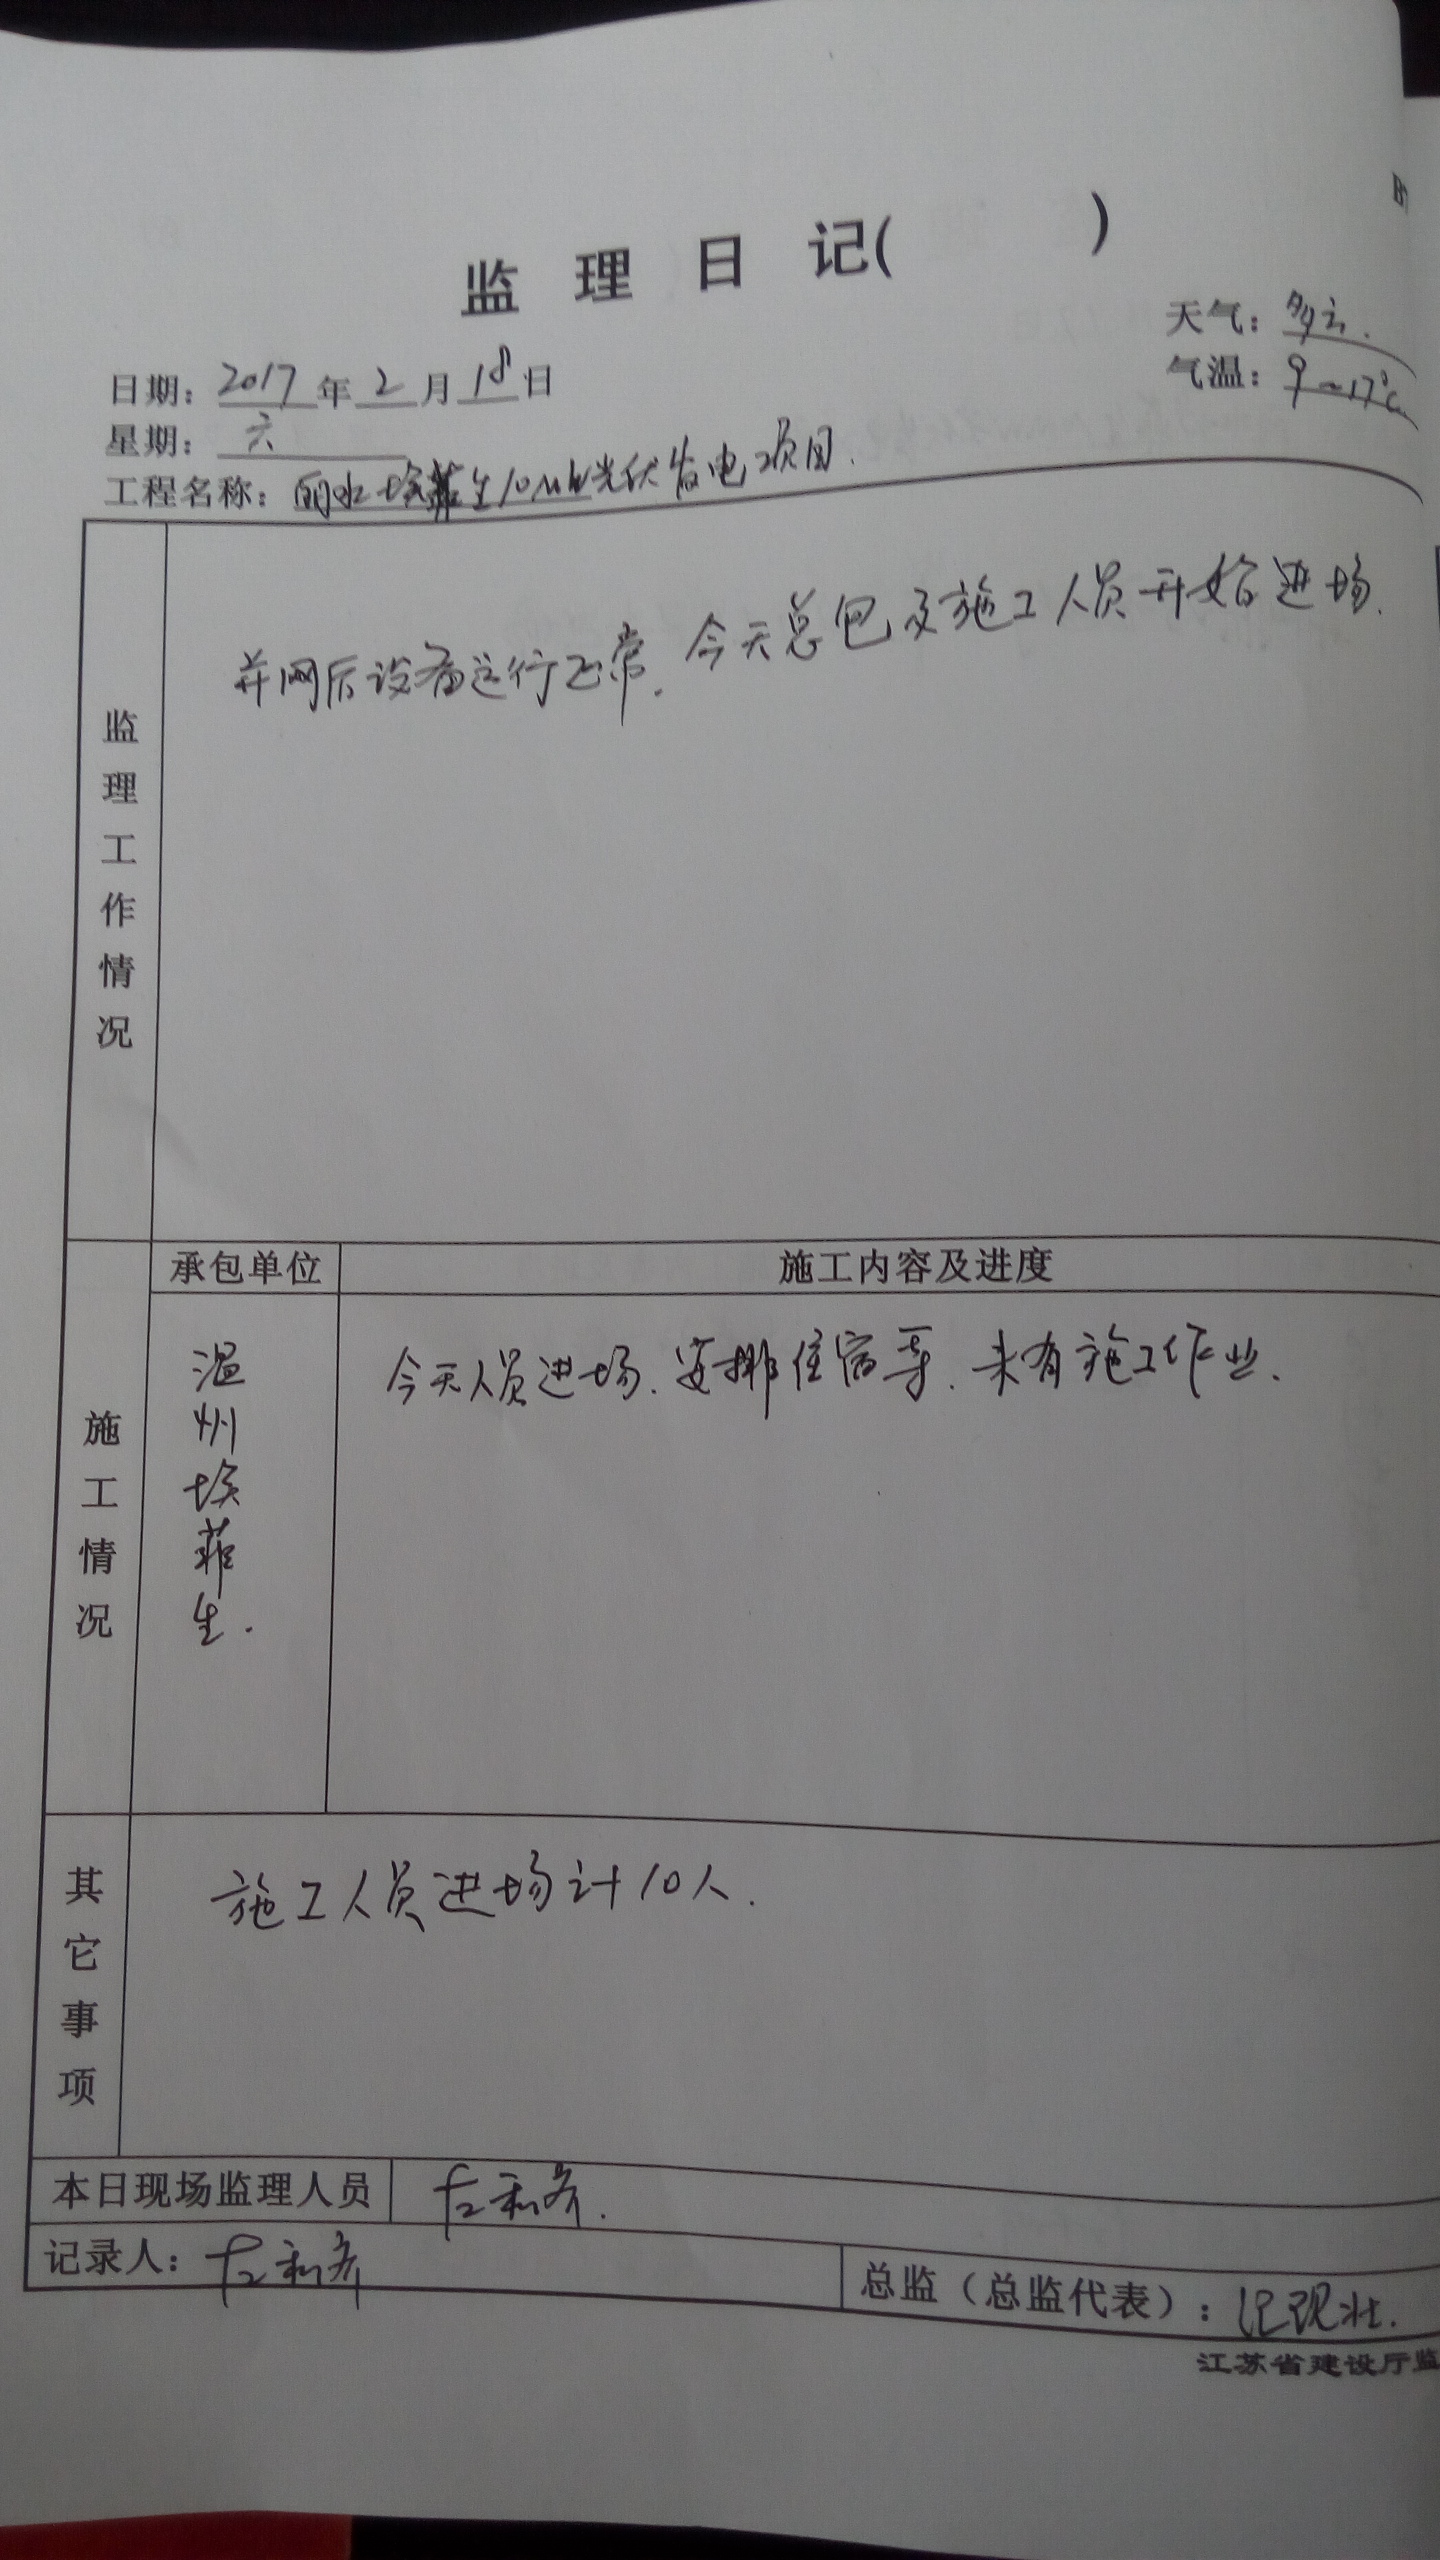 监 理 日 记( )
天气：多云.
日期：2017年2月18日
气温：9~17℃
星期：六
工程名称：丽水埃菲生10MW光伏发电项目.
监理工作情况
并网后设备运行正常.今天总包及施工人员开始进场.
施工情况
承包单位
施工内容及进度
温州埃菲生.
今天人员进场.安排住宿等.未有施工作业.
其它事项
施工人员进场计10人.
本日现场监理人员
左和齐.
记录人：左和齐
总监（总监代表）：
江苏省建设厅监